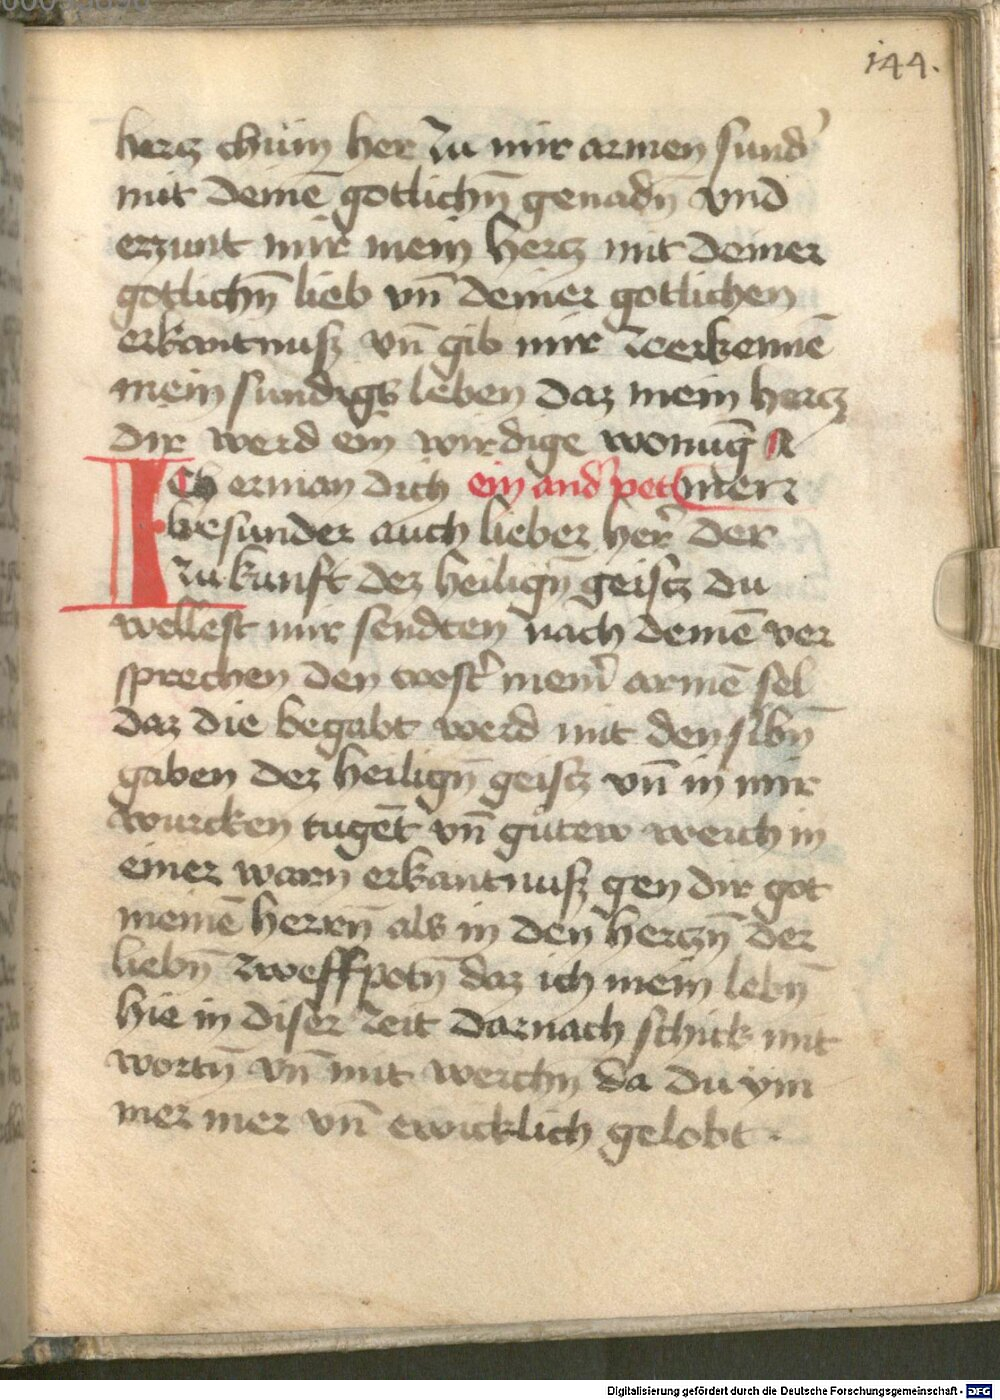 144.
hercz chum her zu mir armen sund᾽
mit deinē gotlichn̄ genadn̄ vnd
erzunt mir mein hercz mit deiner
gotlichn̄ lieb vn̄ deiner gotlichen
erkantnuß vn̄ gib mir zerkennē
mein sundigs leben daz mein hercz
dir werd ein wirdige wonūg A
Ich erman dich ein and᾽ pet men
besunder auch lieber her᾽ der
zukunft dez heilign̄ geistz du
wellest mir sendten nach deinē ver
sprechen den trost᾽ mein᾽ armē sel
daz die begabt werd mit den sibn̄
gaben dez heilign̄ geistz vn̄ in mir
wurcken tugēt vn̄ gutew werch in
einer warn erkantnuß gen dir got
meinē herrn̄ als in den herczn̄ der
liebn̄ zweffpotn̄ daz ich mein lebn̄
hie in diser zeit darnach schick mit
wortn̄ vn̄ mit werchn̄ da du ym
mer mer vn̄ ewicklich gelobt ·
Digitalisierung gefördert durch die Deutsche Forschungsgemeinschaft - DFG